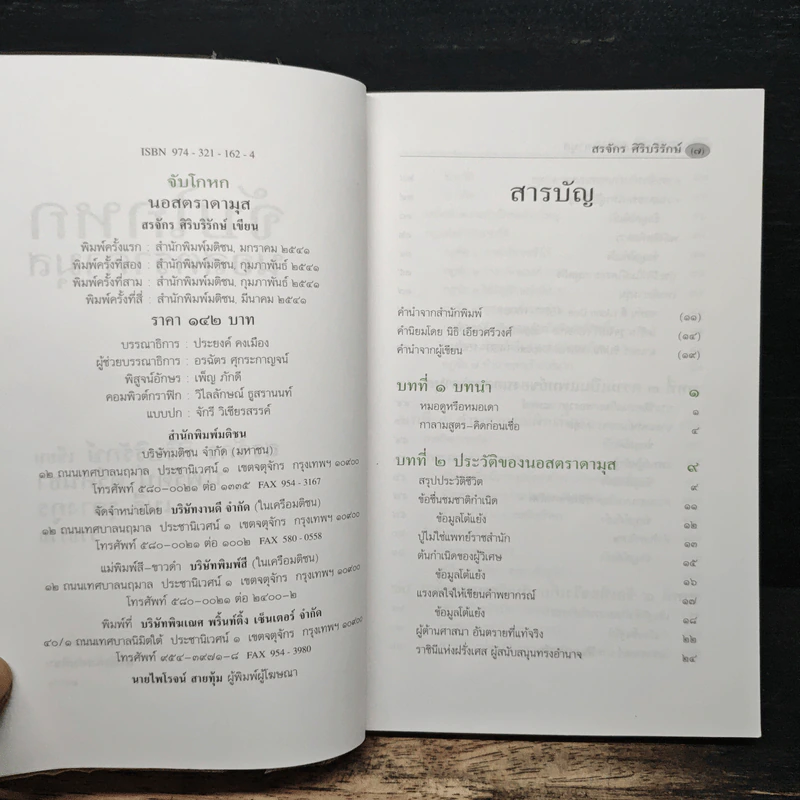 ISBN 974 - 321 - 162 - 4
จับโกหก
นอสตราดามุส
สรจักร ศิริบริรักษ์ เขียน
พิมพ์ครั้งแรก : สำนักพิมพ์มติชน, มกราคม ๒๕๔๑
พิมพ์ครั้งที่สอง : สำนักพิมพ์มติชน, กุมภาพันธ์ ๒๕๔๑
พิมพ์ครั้งที่สาม : สำนักพิมพ์มติชน, กุมภาพันธ์ ๒๕๔๑
พิมพ์ครั้งที่สี่ : สำนักพิมพ์มติชน, มีนาคม ๒๕๔๑
ราคา ๑๔๒ บาท
บรรณาธิการ : ประยงค์ คงเมือง
ผู้ช่วยบรรณาธิการ : อรฉัตร ศุกระกาญจน์
พิสูจน์อักษร : เพ็ญ ภักดี
คอมพิวต์กราฟิก : วิไลลักษณ์ ธูสรานนท์
แบบปก : จักรี วิเชียรสรรค์
สำนักพิมพ์มติชน
บริษัทมติชน จำกัด (มหาชน)
๑๒ ถนนเทศบาลนฤมาล ประชานิเวศน์ ๑ เขตจตุจักร กรุงเทพฯ ๑๐๙๐๐
โทรศัพท์ ๕๘๐-๐๐๒๑ ต่อ ๑๓๓๕ FAX 954 - 3167
จัดจำหน่ายโดย บริษัทงานดี จำกัด (ในเครือมติชน)
๑๒ ถนนเทศบาลนฤมาล ประชานิเวศน์ ๑ เขตจตุจักร กรุงเทพฯ ๑๐๙๐๐
โทรศัพท์ ๕๘๐-๐๐๒๑ ต่อ ๑๐๐๒ FAX 580 - 0558
แม่พิมพ์สี-ขาวดำ บริษัทพิมพ์สี (ในเครือมติชน)
๑๒ ถนนเทศบาลนฤมาล ประชานิเวศน์ ๑ เขตจตุจักร กรุงเทพฯ ๑๐๙๐๐
โทรศัพท์ ๕๘๐-๐๐๒๑ ต่อ ๒๔๐๐-๒
พิมพ์ที่ บริษัทพิฆเณศ พริ้นท์ติ้ง เซ็นเตอร์ จำกัด
๔๐/๑ ถนนเทศบาลนิมิตใต้ ประชานิเวศน์ ๑ เขตจตุจักร กรุงเทพฯ ๑๐๙๐๐
โทรศัพท์ ๙๕๔-๓๙๗๑-๘ FAX 954 - 3980
นายไพโรจน์ สายทุ้ม ผู้พิมพ์ผู้โฆษณา
สรจักร ศิริบริรักษ์ (๗)
สารบัญ
คำนำจากสำนักพิมพ์ (๑๑)
คำนิยมโดย นิธิ เอียวศรีวงศ์ (๑๔)
คำนำจากผู้เขียน (๑๙)
บทที่ ๑ บทนำ ๑
หมอดูหรือหมอเดา ๑
กาลามสูตร-คิดก่อนเชื่อ ๔
บทที่ ๒ ประวัติของนอสตราดามุส ๙
สรุปประวัติชีวิต ๙
ข้อชื่นชมชาติกำเนิด ๑๑
ข้อมูลโต้แย้ง ๑๒
ปู่ไม่ใช่แพทย์ราชสำนัก ๑๓
ต้นกำเนิดของผู้วิเศษ ๑๕
ข้อมูลโต้แย้ง ๑๖
แรงดลใจให้เขียนคำพยากรณ์ ๑๗
ข้อมูลโต้แย้ง ๑๘
ผู้ต้านศาสนา อันตรายที่แท้จริง ๒๒
ราชินีแห่งฝรั่งเศส ผู้สนับสนุนทรงอำนาจ ๒๔